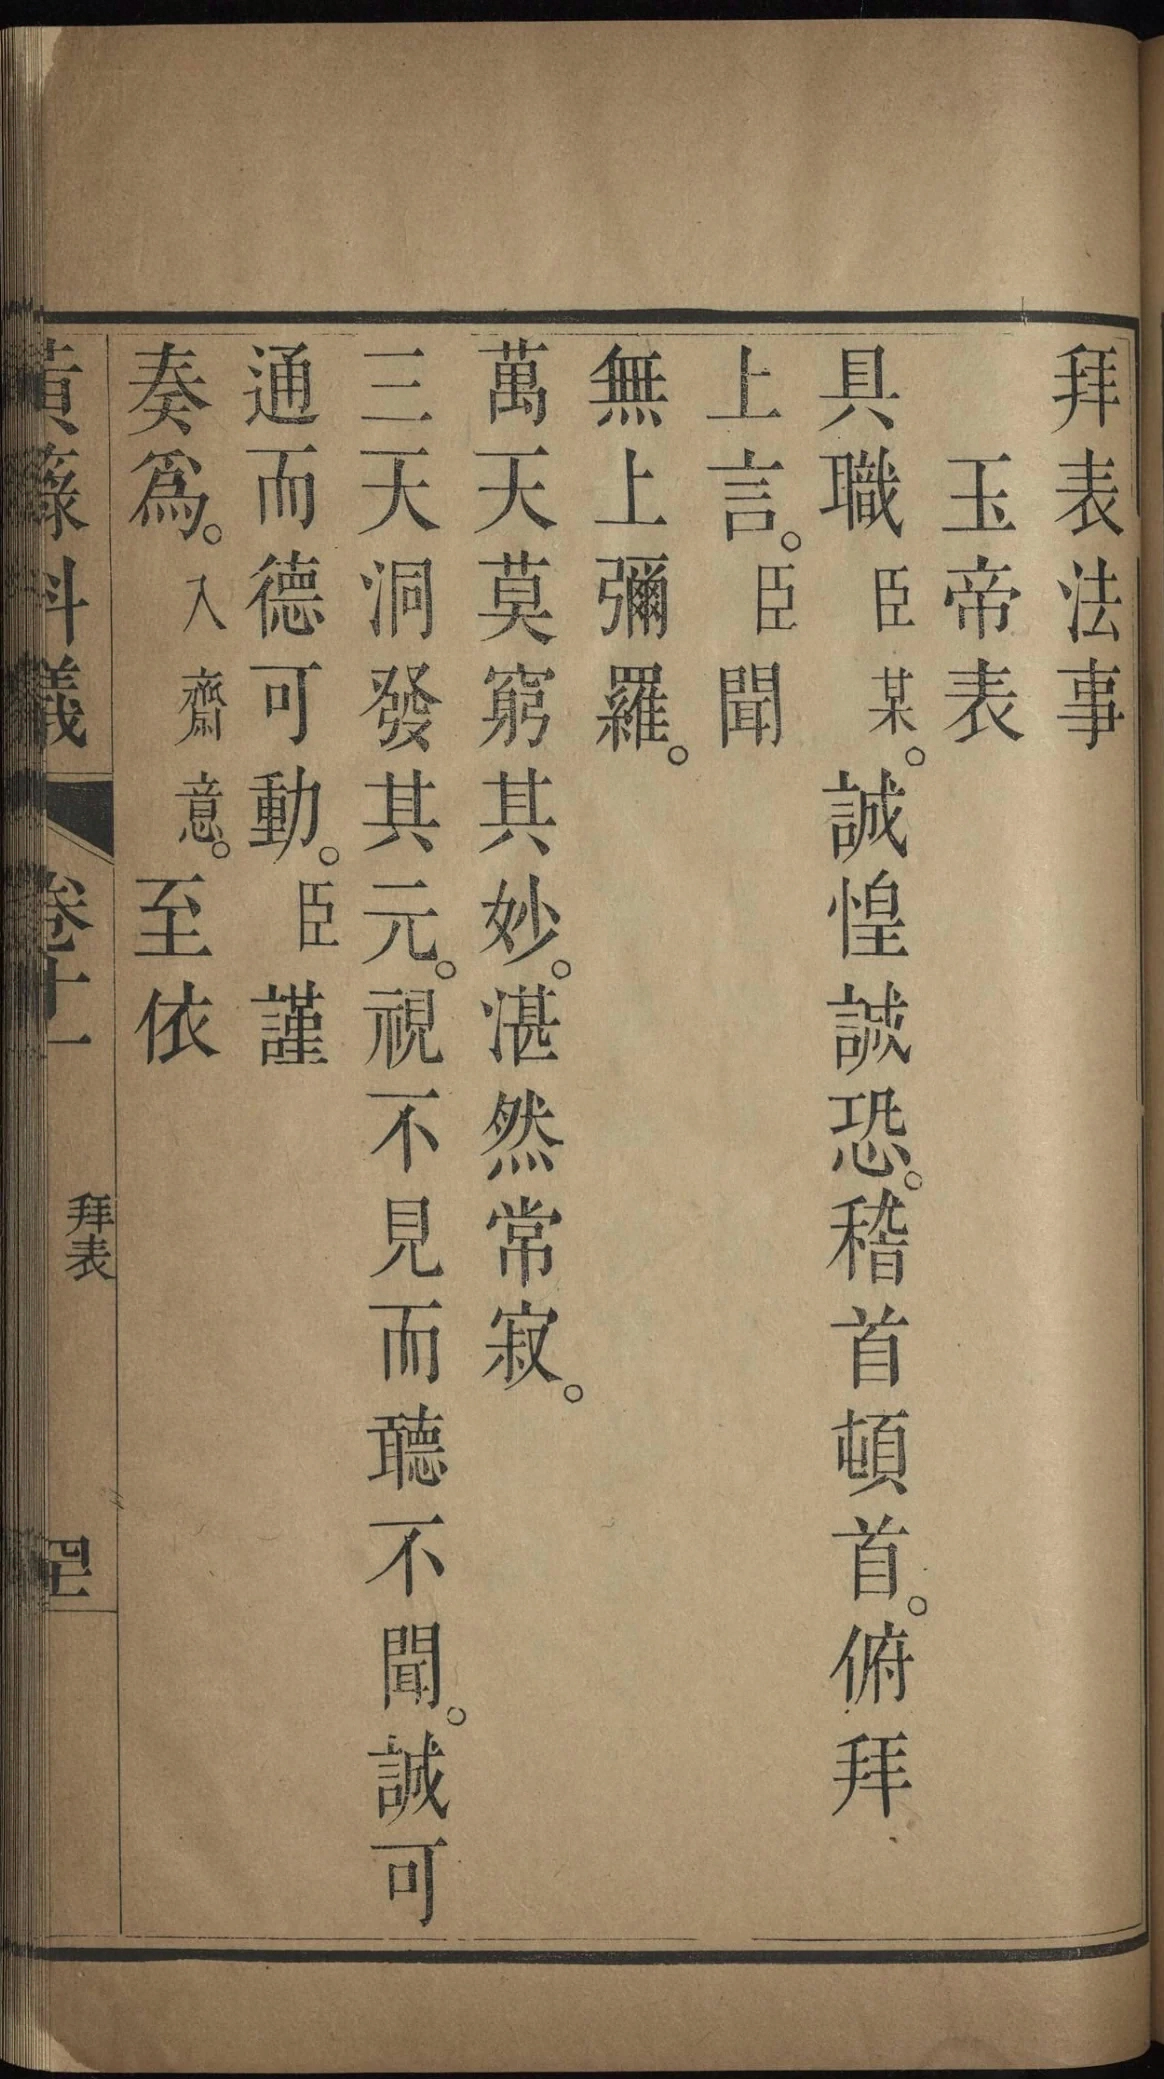 拜表法事
玉帝表
具職臣某。誠惶誠恐。稽首頓首。俯拜
上言。臣聞
無上彌羅。
萬天莫窮其妙。湛然常寂。
三天洞發其元。視不見而聽不聞。誠可
通而德可動。臣謹
奏爲。入齋意。至依
黃籙科儀 卷十一 拜表